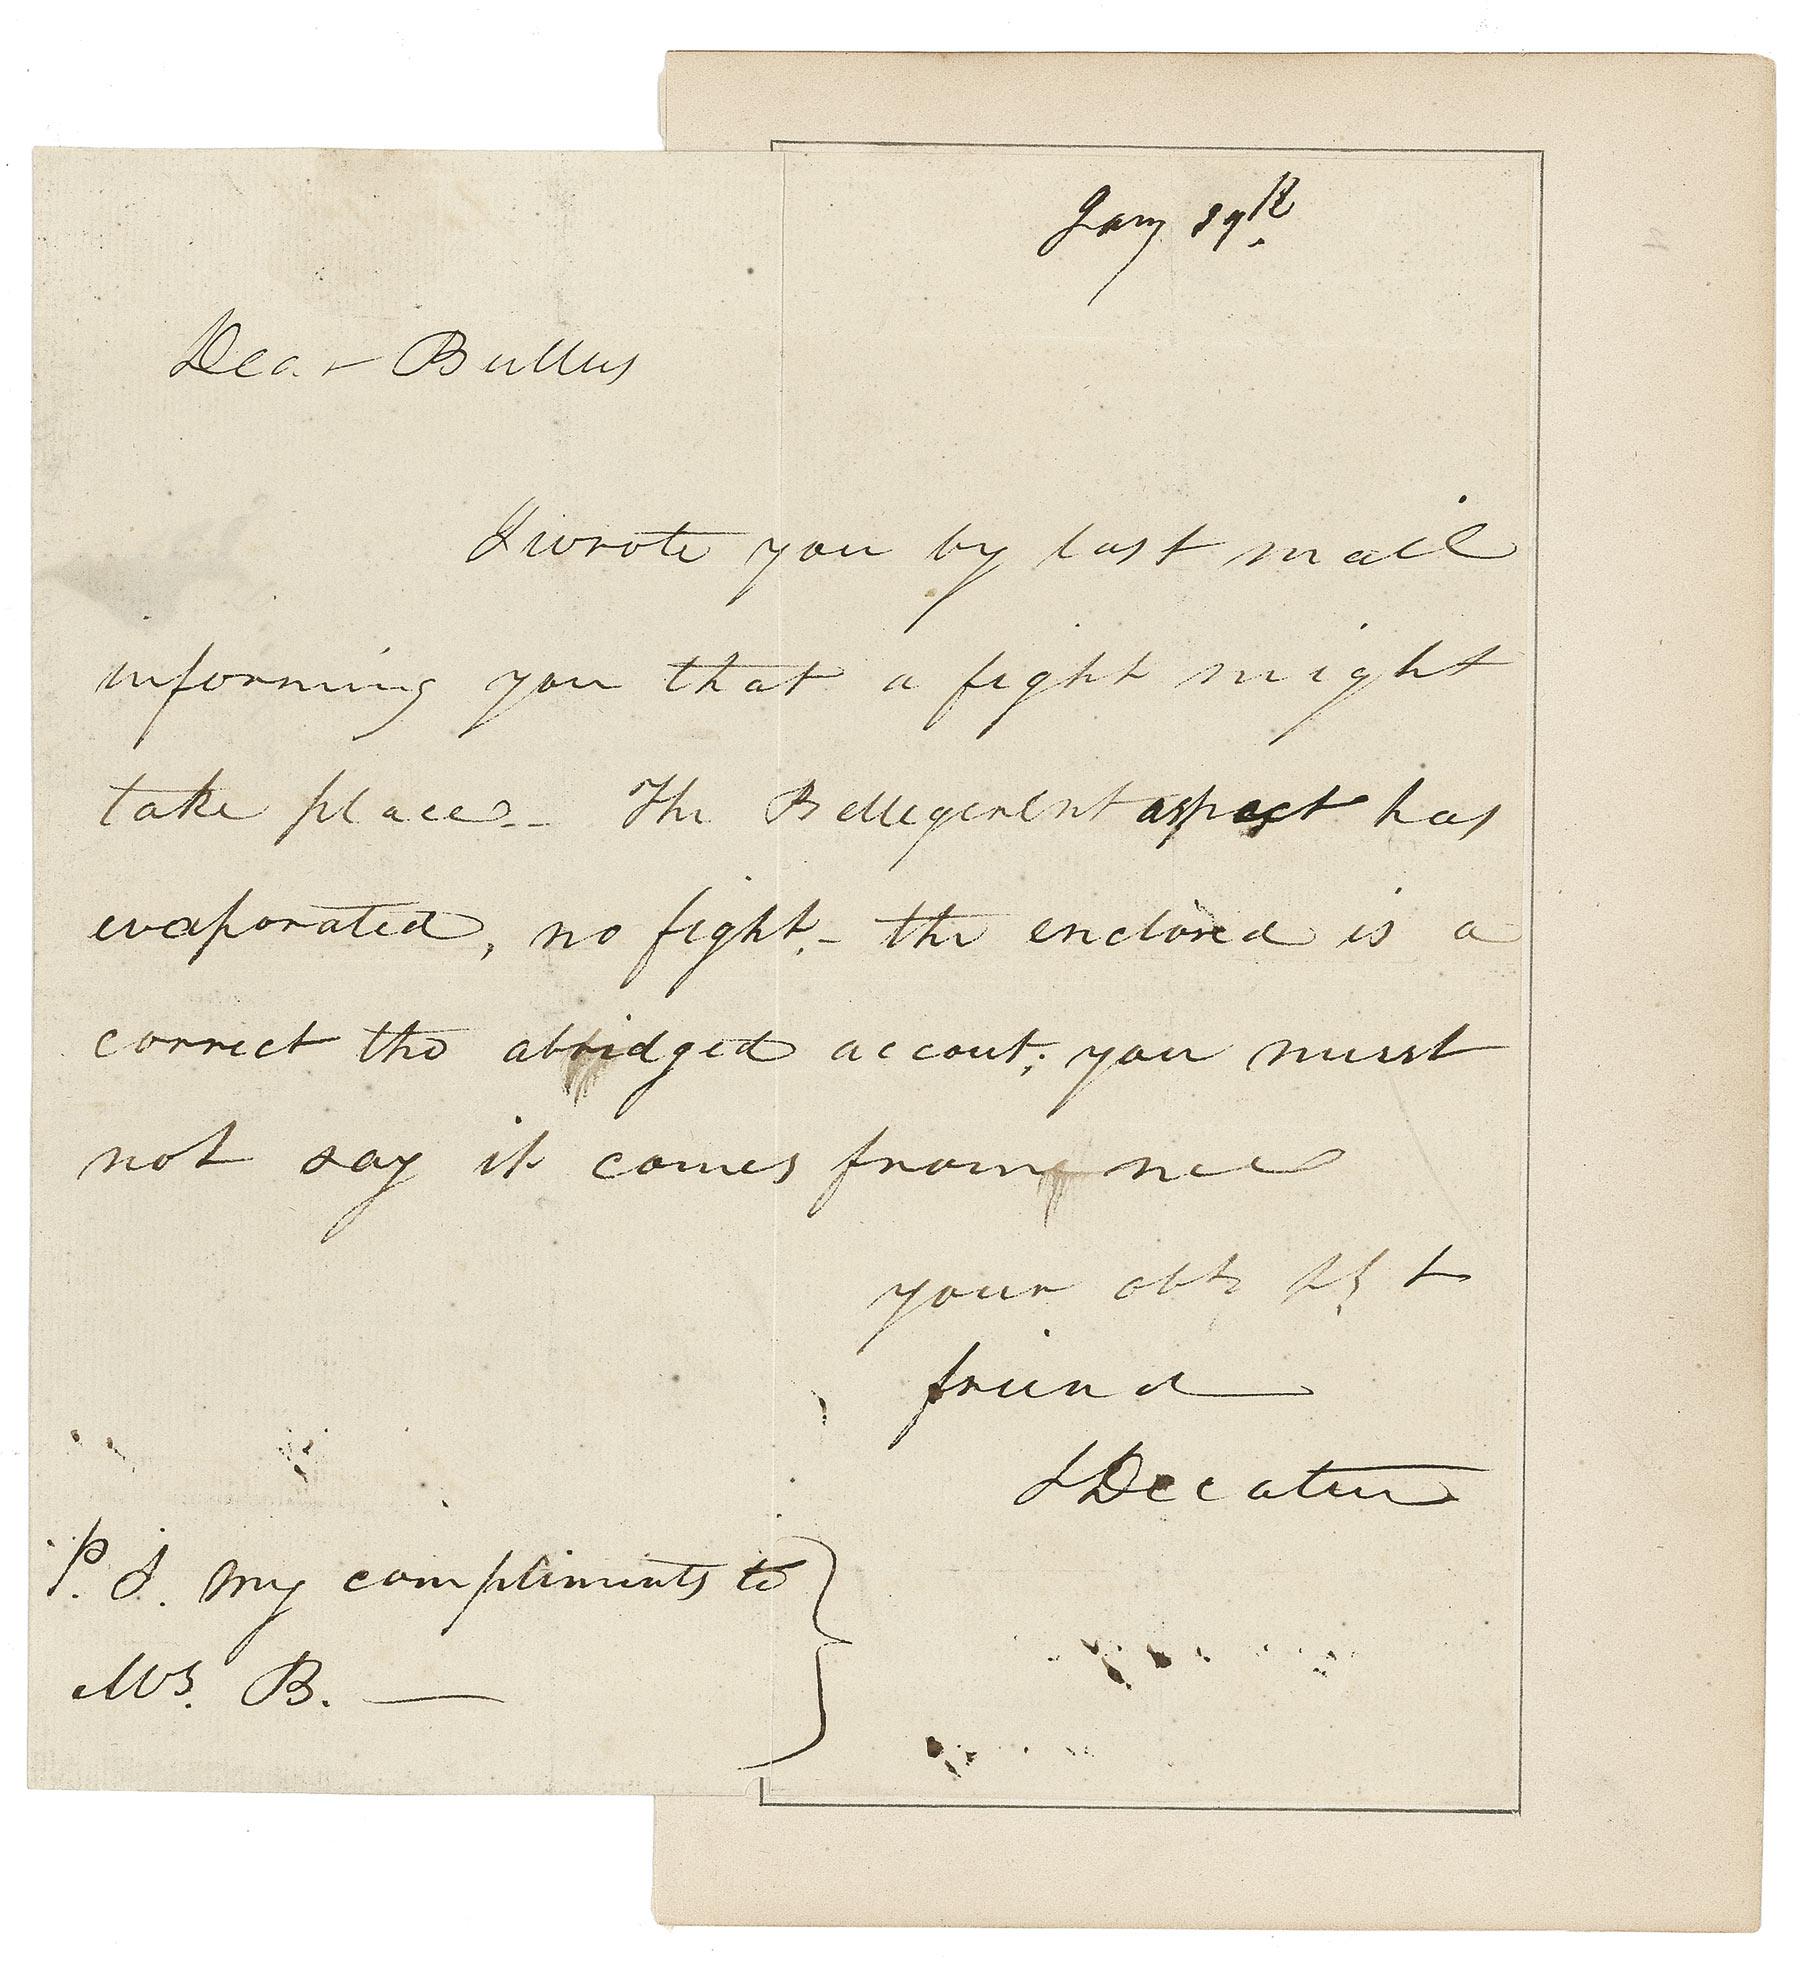 Jany 19th
Dear Bullus
I wrote you by last mail
informing you that a fight might
take place -- The Bellegerent aspect has
evaporated, no fight. - the enclosed is a
correct tho abridged accout; you must
not say it comes from me
your obt
friend
S Decatur
P. S. My compliments to
Mrs. B. —